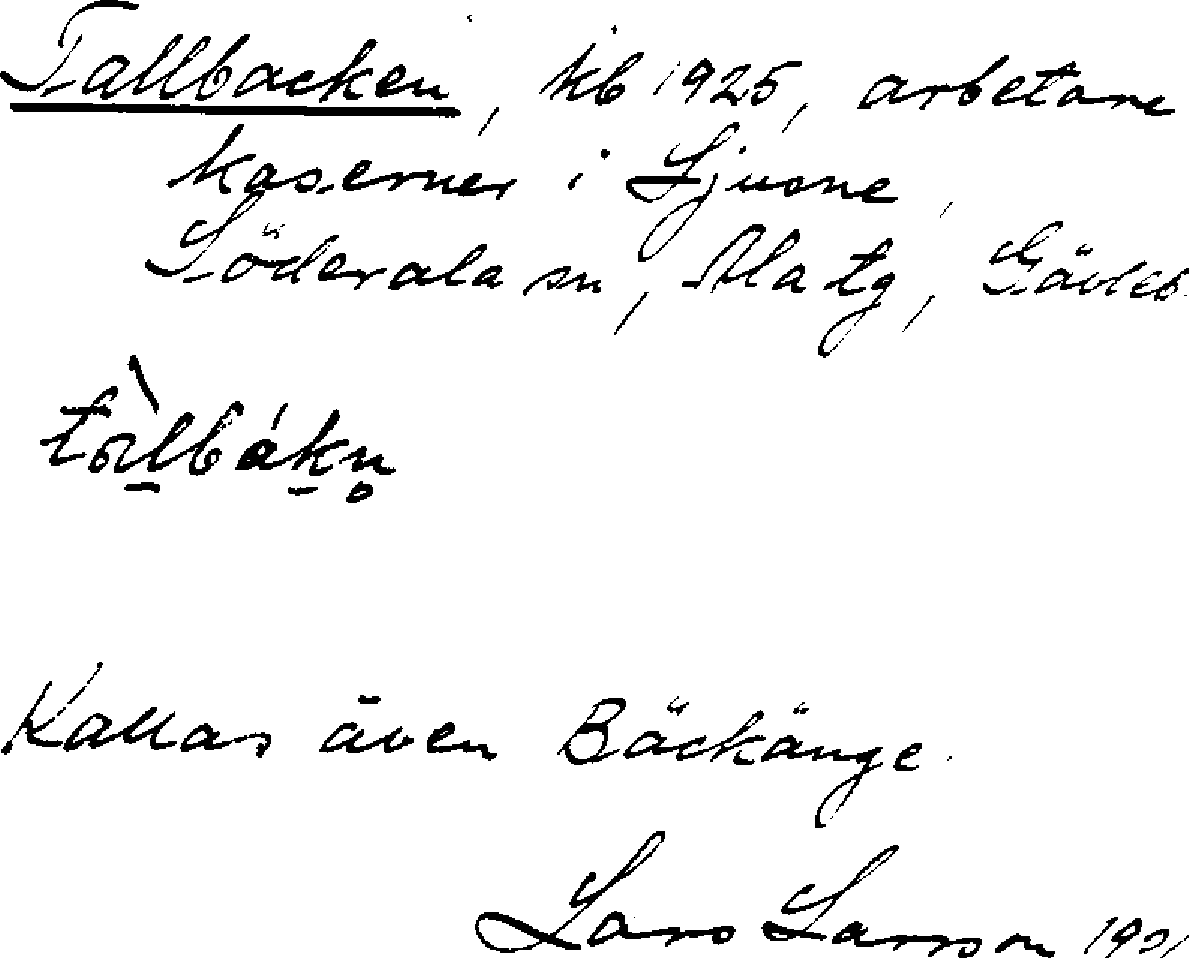 Tallbacken, kb 1925, arbetare
kaserner i Ljusne,
Söderala sn, Ala tg, Gävleb.
Kallas även Bäckänge.
Lars Larsson